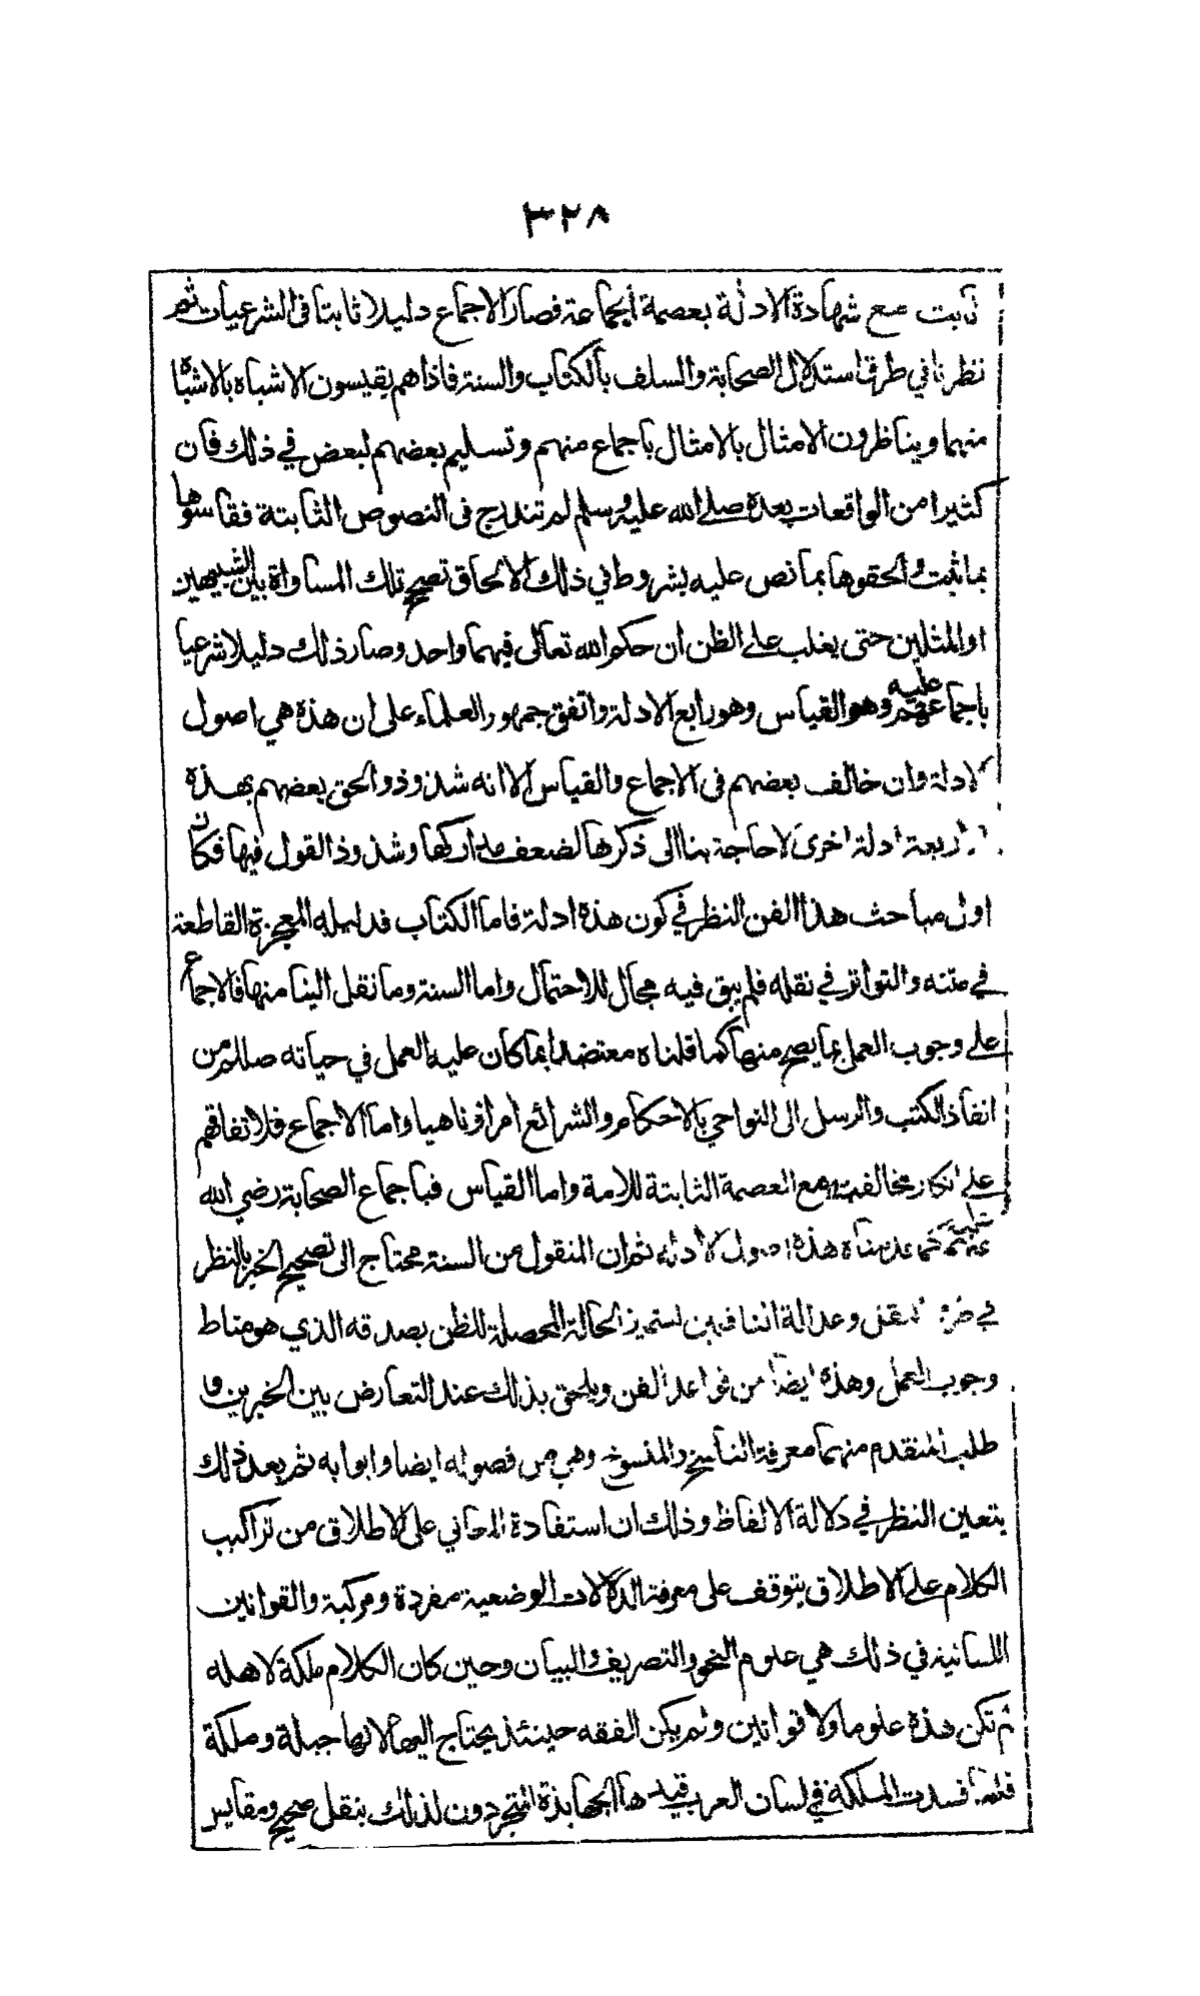 ٣٢٨
ثابت مع شهادة الادلة بعصمة الجماعة فصار الاجماع دليلا ثابتا فى الشرعيات ثم
نظرنا في طرق استدلال الصحابة والسلف بالكتاب والسنة فاذا هم يقيسون الاشباه بالاشباه
منهما ويناظرون الامثال بالامثال باجماع منهم وتسليم بعضهم لبعض في ذلك فان
كثيرا من الواقعات بعده صلى الله عليه وسلم لم تندرج فى النصوص الثابتة فقاسوها
بما ثبت والحقوها بما نص عليه بشروط في ذلك الالحاق تصحح تلك المساواة بين الشبيهين
او المثلين حتى يغلب على الظن ان حكم الله تعالى فيهما واحد وصار ذلك دليلا شرعيا
باجماعهم عليه وهو القياس وهو رابع الادلة واتفق جمهور العلماء على ان هذه هي اصول
الادلة وان خالف بعضهم فى الاجماع والقياس الا انه شذوذ والحق بعضهم بهذه
الاربعة ادلة اخرى لا حاجة بنا الى ذكرها لضعف مداركها وشذوذ القول فيها فكان
اول مباحث هذا الفن النظر في كون هذه ادلة فاما الكتاب فدليله المعجزة القاطعة
في متنه والتواتر في نقله فلم يبق فيه مجال للاحتمال واما السنة وما نقل الينا منها فالاجماع
على وجوب العمل بما يصح منها كما قلناه معتضدا بما كان عليه العمل في حياته صللم من
انفاذ الكتب والرسل الى النواحي بالاحكام والشرائع امرا وناهيا واما الاجماع فلاتفاقهم
على انكار مخالفتهم مع العصمة الثابتة للامة واما القياس فباجماع الصحابة رضي الله
عنهم عليه كما قدمناه هذه اصول الادلة ثم ان المنقول من السنة محتاج الى تصحيح الخبر بالنظر
في طرق النقل وعدالة الناقلين لتتميز الحالة المحصلة للظن بصدقه الذي هو مناط
وجوب العمل وهذه ايضا من قواعد الفن ويلحق بذلك عند التعارض بين الخبرين و
طلب المتقدم منهما معرفة الناسخ والمنسوخ وهي من فصوله ايضا وابوابه ثم بعد ذلك
يتعين النظر في دلالة الالفاظ وذلك ان استفادة المعاني على الاطلاق من تراكيب
الكلام على الاطلاق يتوقف على معرفة الدلالات الوضعية مفردة ومركبة والقوانين
اللسانية في ذلك هي علوم النحو والتصريف والبيان وحين كان الكلام ملكة لاهله
لم تكن هذه علوما ولا قوانين ولم يكن الفقه حينئذ يحتاج اليها لانها جبلة وملكة
فلما فسدت الملكة في لسان العرب قيدها الجهابذة المتجردون لذلك بنقل صحيح ومقايس